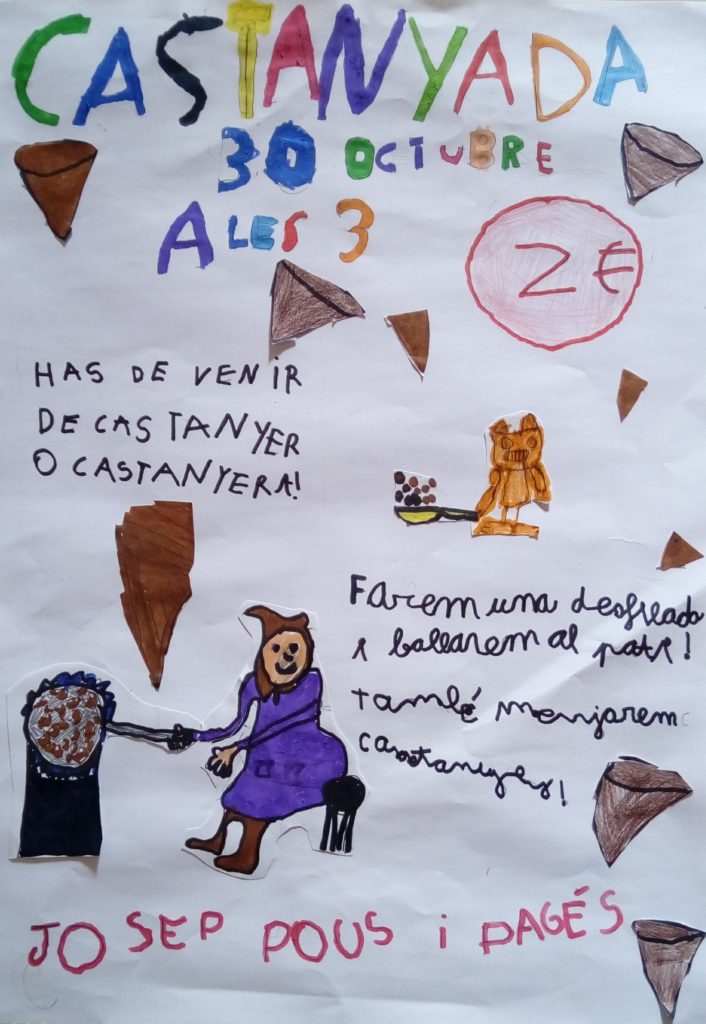 CASTANYADA
30 OCTUBRE
ALES 3
2€
HAS DE VENIR
DE CASTANYER
O CASTANYERA!
Farem una desfilada
i ballarem al pati!
també menjarem
castanyes!
JOSEP POUS i PAGÉS